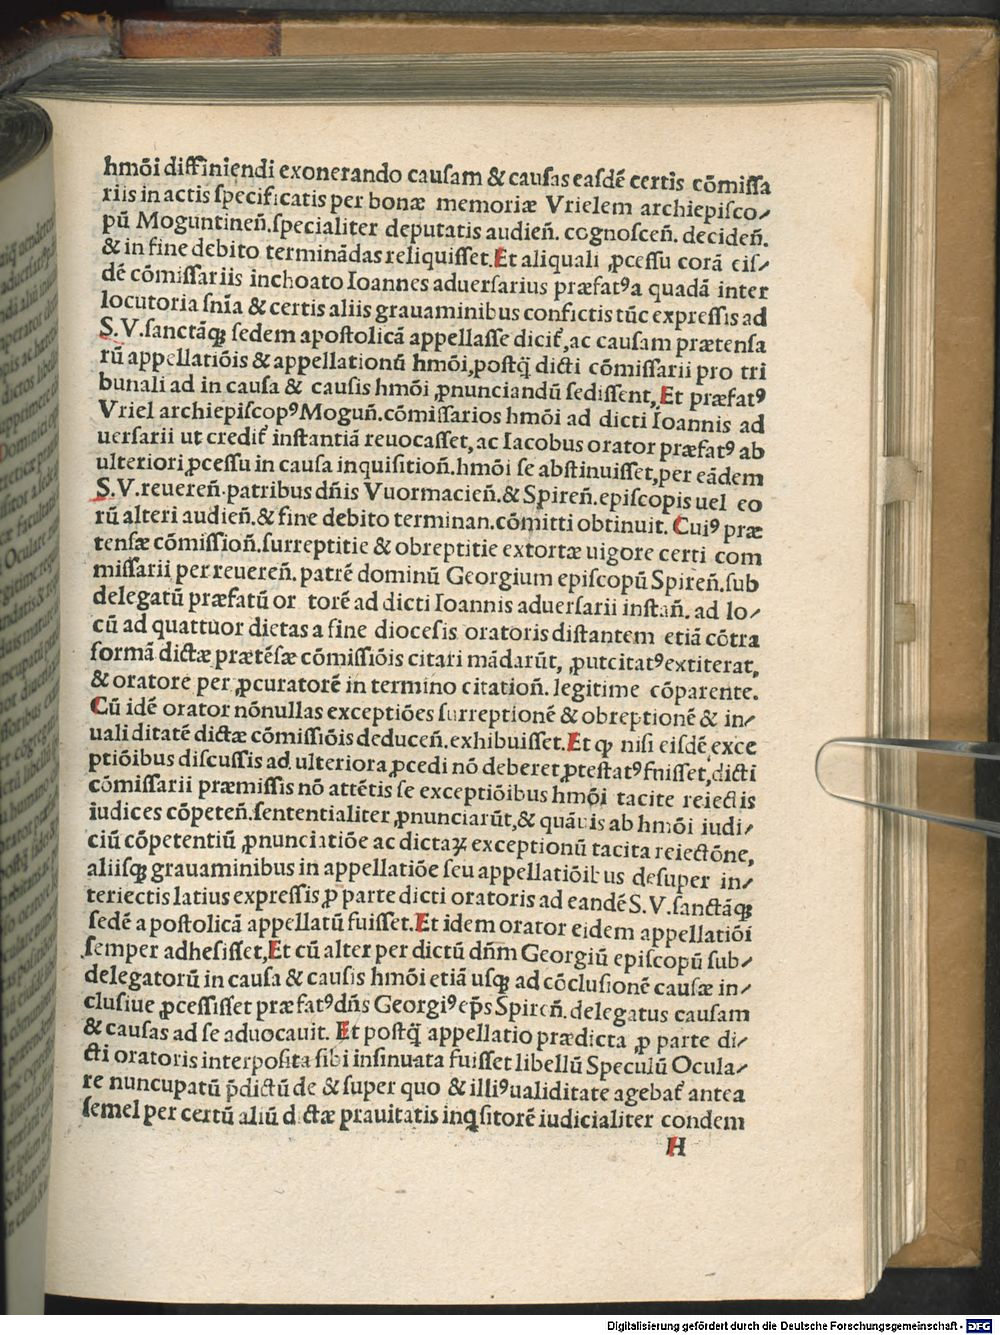 hmõi diffiniendi exonerando cauſam & cauſas eaſdẽ certis cõmiſſa
riis in actis ſpecificatis per bonæ memoriæ Vrielem archiepiſco⸗
pũ Moguntineñ.ſpecialiter deputatis audieñ. cognoſceñ. decideñ.
& in fine debito terminãdas reliquiſſet.Et aliquali ꝓceſſu corã eiſ⸗
dẽ cõmiſſariis inchoato Ioannes aduerſarius præfatꝰa quadã inter
locutoria ſnĩa & certis aliis grauaminibus confictis tũc expreſſis ad
S.V.ſanctãqꝫ ſedem apoſtolicã appellaſſe dicit̃,ac cauſam prætenſa
rũ appellatiõis & appellationũ hmõi,poſtq̃ dicti cõmiſſarii pro tri
bunali ad in cauſa & cauſis hmõi ꝓnunciandũ ſediſſent,Et præfatꝰ
Vriel archiepiſcopꝰMoguñ.cõmiſſarios hmõi ad dicti Ioannis ad
uerſarii ut credit̃ inſtantiã reuocaſſet,ac Iacobus orator præfatꝰ ab
ulteriori ꝓceſſu in cauſa inquiſitioñ.hmõi ſe abſtinuiſſet,per eãdem
S.V.reuereñ.patribus dñis Vuormacieñ.& Spireñ.epiſcopis uel eo
rũ alteri audieñ.& fine debito terminan.cõmitti obtinuit. Cuiꝰ præ
tenſæ cõmiſſioñ.ſurreptitie & obreptitie extortæ uigore certi com
miſſarii per reuereñ. patrẽ dominũ Georgium epiſcopũ Spireñ.ſub
delegatũ præfatũ or torẽ ad dicti Ioannis aduerſarii inſtañ. ad lo⸗
cũ ad quattuor dietas a fine diocefis oratoris diſtantem etiã cõtra
formã dictæ prætẽſæ cõmiſſiõis citari mãdarũt, ꝓutcitatꝰextiterat,
& oratore per ꝓcuratorẽ in termino citatioñ. legitime cõparente.
Cũ idẽ orator nõnullas exceptiões ſurreptionẽ & obreptionẽ & in⸗
ualiditatẽ dictæ cõmiſſiõis deduceñ.exhibuiſſet.Et ꝙ niſi eiſdẽ exce
ptiõibus diſcuſſis ad ulteriora ꝓcedi nõ deberet ꝓteſtatꝰfuiſſet,dicti
cõmiſſarii præmiſſis nõ attẽtis ſe exceptiõibus hmõi tacite reiectis
iudices cõpeteñ.ſententialiter ꝓnunciarũt,& quãuis ab hmõi iudi⸗
ciũ cõpetentiũ ꝓnunciatiõe ac dictaꝝ exceptionũ tacita reiectõne,
aliiſqꝫ grauaminibus in appellatiõe ſeu appellatiõibus deſuper in⸗
teriectis latius expreſſis ꝓ parte dicti oratoris ad eandẽ S.V.ſanctãqꝫ
ſedẽ apoſtolicã appellatũ fuiſſet.Et idem orator eidem appellatiõi
ſemper adheſiſſet,Et cũ alter per dictũ dñm Georgiũ epiſcopũ ſub⸗
delegatorũ in cauſa & cauſis hmõi etiã uſqꝫ ad cõcluſionẽ cauſæ in⸗
cluſiue ꝓceſſiſſet præfatꝰdñs Georgiꝰ ep̃s Spireñ.delegatus cauſam
& cauſas ad ſe aduocauit. Et poſtq̃ appellatio prædicta ꝓ parte di⸗
cti oratoris interpoſita ſibi inſinuata fuiſſet libellũ Speculũ Ocula⸗
re nuncupatũ p̃dictũ de & ſuper quo & illiꝰualiditate agebat̃ antea
ſemel per certũ aliũ dictæ prauitatis inq̃ſitorẽ iudicialiter condem
H
Digitalisierung gefördert durch die Deutsche Forschungsgemeinschaft - DFG